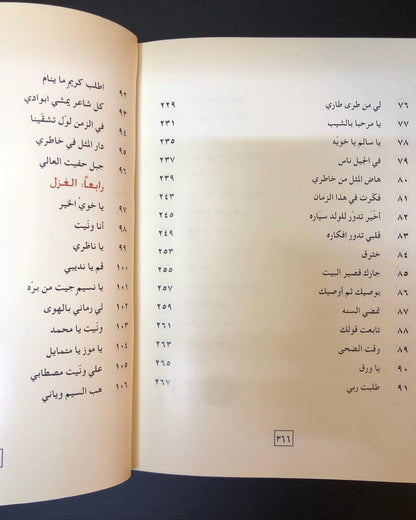 ٧٦ لي من طرى طاري ٢٢٩
٧٧ يا مرحبا بالشيب ٢٣١
٧٨ يا سالم يا خويّه ٢٣٥
٧٩ في الجيل ناس ٢٣٧
٨٠ هاض المثل من خاطري ٢٣٩
٨١ فكرت في هذا الزمان ٢٤٣
٨٢ أخبَر تدوّر للولد سيّاره ٢٤٥
٨٣ قلبي تدور افكاره ٢٤٩
٨٤ خثرق ٢٥٣
٨٥ جارك قصير البيت ٢٥٥
٨٦ يوصيك ثم أوصيك ٢٥٧
٨٧ تمضي السنه ٢٥٩
٨٨ تابعت قولك ٢٦١
٨٩ وقت الضحى ٢٦٣
٩٠ يا ورق ٢٦٥
٩١ طلبت ربي ٢٦٧
٣٦٦
٩٢ اطلب كريم ما ينام
٩٣ كل شاعر يمشي ابوادي
٩٤ في الزمن لوّل تشقّينا
٩٥ دار المثل في خاطري
٩٦ جبل حفيت العالي
رابعاً: الغزل
٩٧ يا خويْ الخير
٩٨ أنا ونّيت
٩٩ يا ناظري
١٠٠ قم يا نديبي
١٠١ يا نسيم جيت من برّه
١٠٢ لي رماني بالهوى
١٠٣ ونّيت يا محمد
١٠٤ يا موز يا متمايل
١٠٥ علي ونّيت مصطابي
١٠٦ هب السيم وياني